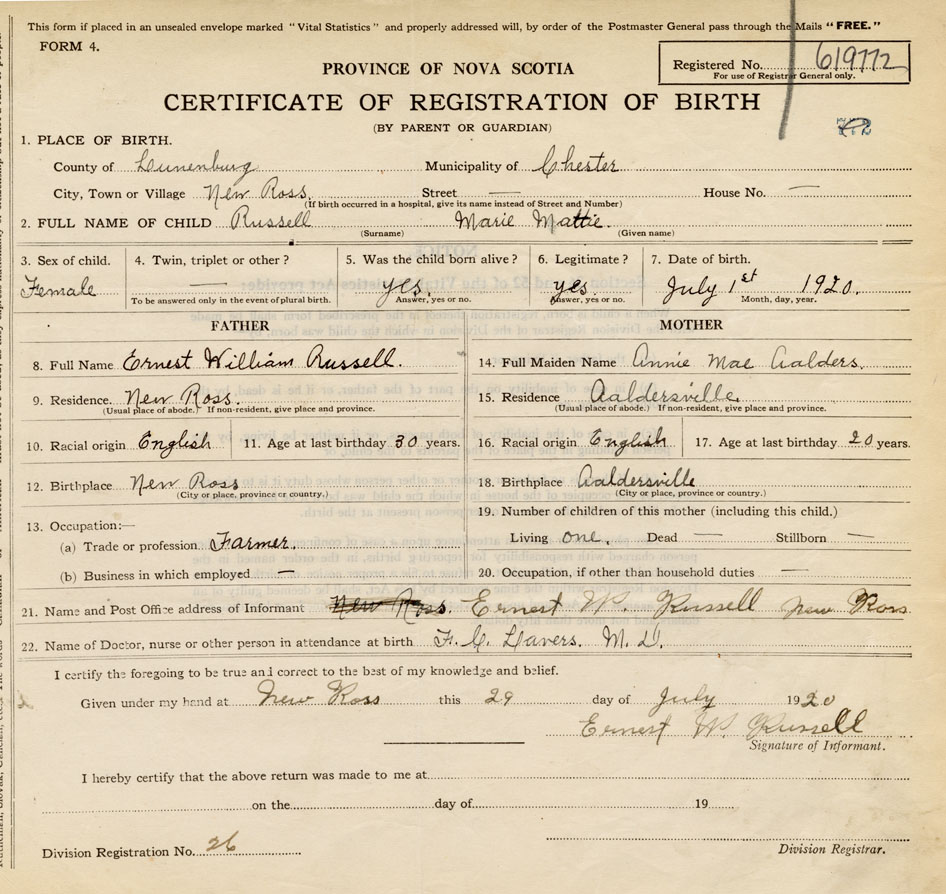 This form if placed in an unsealed envelope marked "Vital Statistics" and properly addressed will, by order of the Postmaster General pass through the Mails "FREE."
FORM 4.
Registered No. 619772
For use of Registrar General only.
PROVINCE OF NOVA SCOTIA
CERTIFICATE OF REGISTRATION OF BIRTH
(BY PARENT OR GUARDIAN)
1. PLACE OF BIRTH.
County of Lunenburg Municipality of Chester
City, Town or Village New Ross. Street — House No. —
(If birth occurred in a hospital, give its name instead of Street and Number)
2. FULL NAME OF CHILD Russell Marie Mattie.
(Surname) (Given name)
3. Sex of child. 4. Twin, triplet or other? 5. Was the child born alive? 6. Legitimate? 7. Date of birth.
Female — yes. yes July 1st 1920.
To be answered only in the event of plural birth. Answer, yes or no. Answer, yes or no. Month, day, year.
FATHER MOTHER
8. Full Name Ernest William Russell. 14. Full Maiden Name Annie Mae Aalders.
9. Residence. New Ross. 15. Residence Aaldersville.
(Usual place of abode.) If non-resident, give place and province. (Usual place of abode.) If non-resident, give place and province.
10. Racial origin English 11. Age at last birthday 30 years. 16. Racial origin English 17. Age at last birthday 20 years.
12. Birthplace New Ross 18. Birthplace Aaldersville
(City or place, province or country.) (City or place, province or country.)
13. Occupation:— 19. Number of children of this mother (including this child.)
(a) Trade or profession Farmer. Living one. Dead — Stillborn —
(b) Business in which employed — 20. Occupation, if other than household duties —
21. Name and Post Office address of Informant New Ross. Ernest W. Russell New Ross.
22. Name of Doctor, nurse or other person in attendance at birth F. C. Lavers. M. D.
I certify the foregoing to be true and correct to the best of my knowledge and belief.
Given under my hand at New Ross this 29 day of July 1920
Ernest W. Russell
Signature of Informant.
I hereby certify that the above return was made to me at
on the day of 19
Division Registration No. 26
Division Registrar.